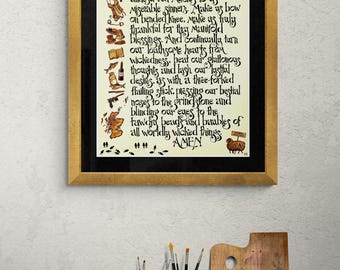 miserable sinners. Make us bow
on bended knee. Make us truly
thankful for thy manifold
blessings. And continually turn
our loathsome hearts from
wickedness, beat our gluttonous
thoughts and lash our lustful
desires as with a three-forked
flailing stick, pressing our bestial
noses to the grindstone and
blinding our eyes to the
tawdry beads and baubles of
all worldly wicked things.
AMEN